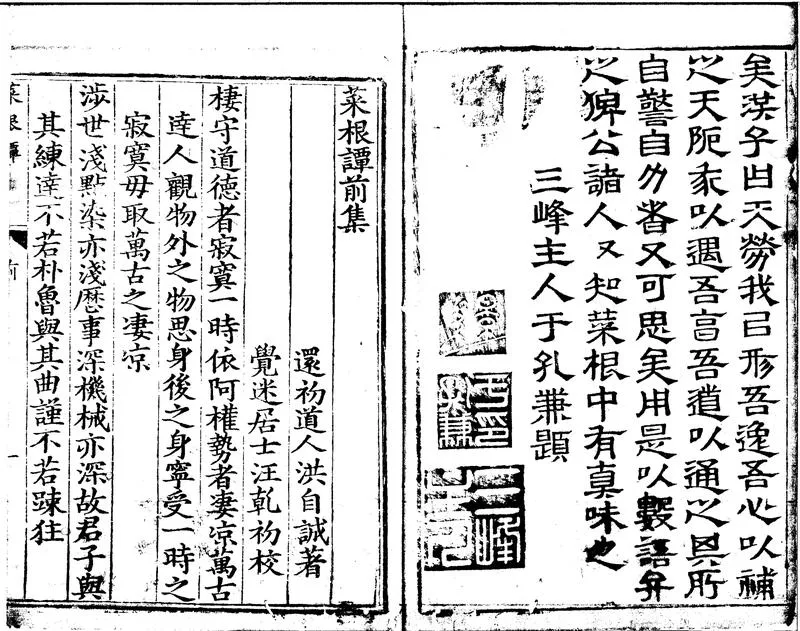 矣洪子曰天勞我以形吾逸吾心以補
之天阨我以遇吾高吾道以通之其所
自警自力者又可思矣用是以數語弁
之俾公諸人人知菜根中有真味也
三峰主人于孔兼題
菜根譚前集
還初道人洪自誠著
覺迷居士汪乾初校
棲守道德者寂寞一時依阿權勢者凄凉萬古
達人觀物外之物思身後之身寧受一時之
寂寞毋取萬古之凄凉
涉世淺點染亦淺歷事深機械亦深故君子與
其練達不若朴魯與其曲謹不若踈狂
菜根譚 前 一